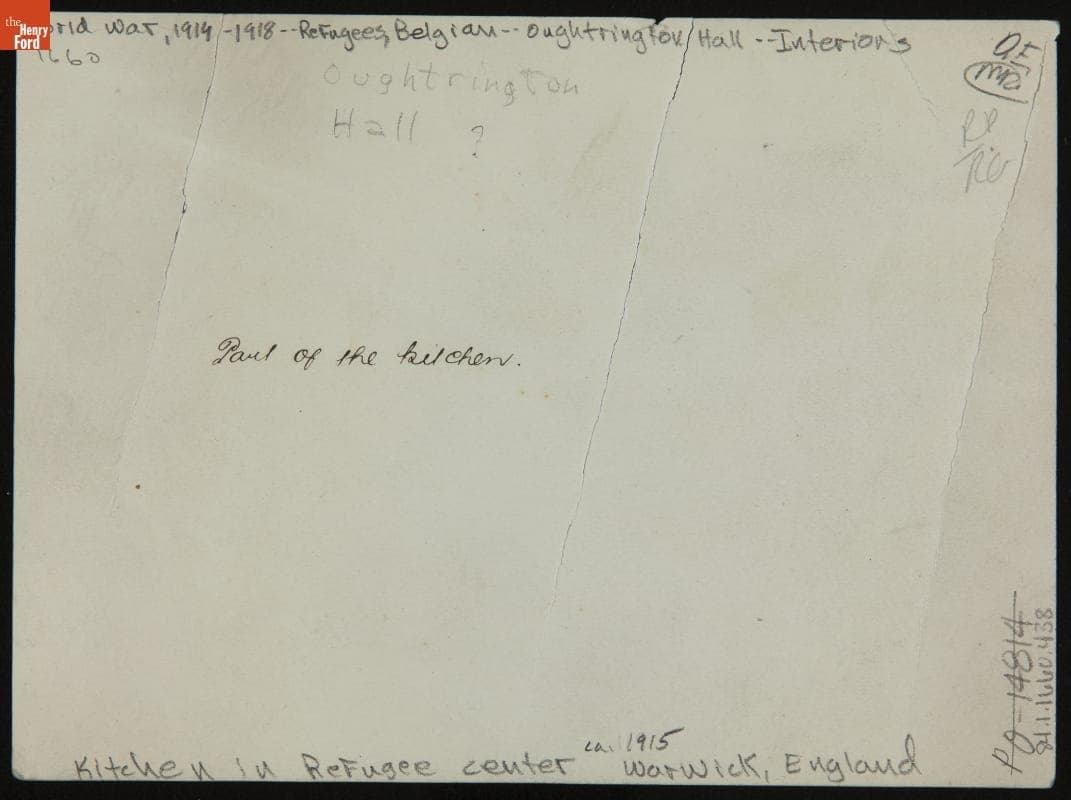 the Henry Ford
World War, 1914-1918--Refugees, Belgian--Oughtrington Hall--Interiors
1660
Oughtrington
Hall ?
Part of the kitchen.
ca. 1915
Kitchen in Refugee center Warwick, England
Pg-14814
84.1.1660.438